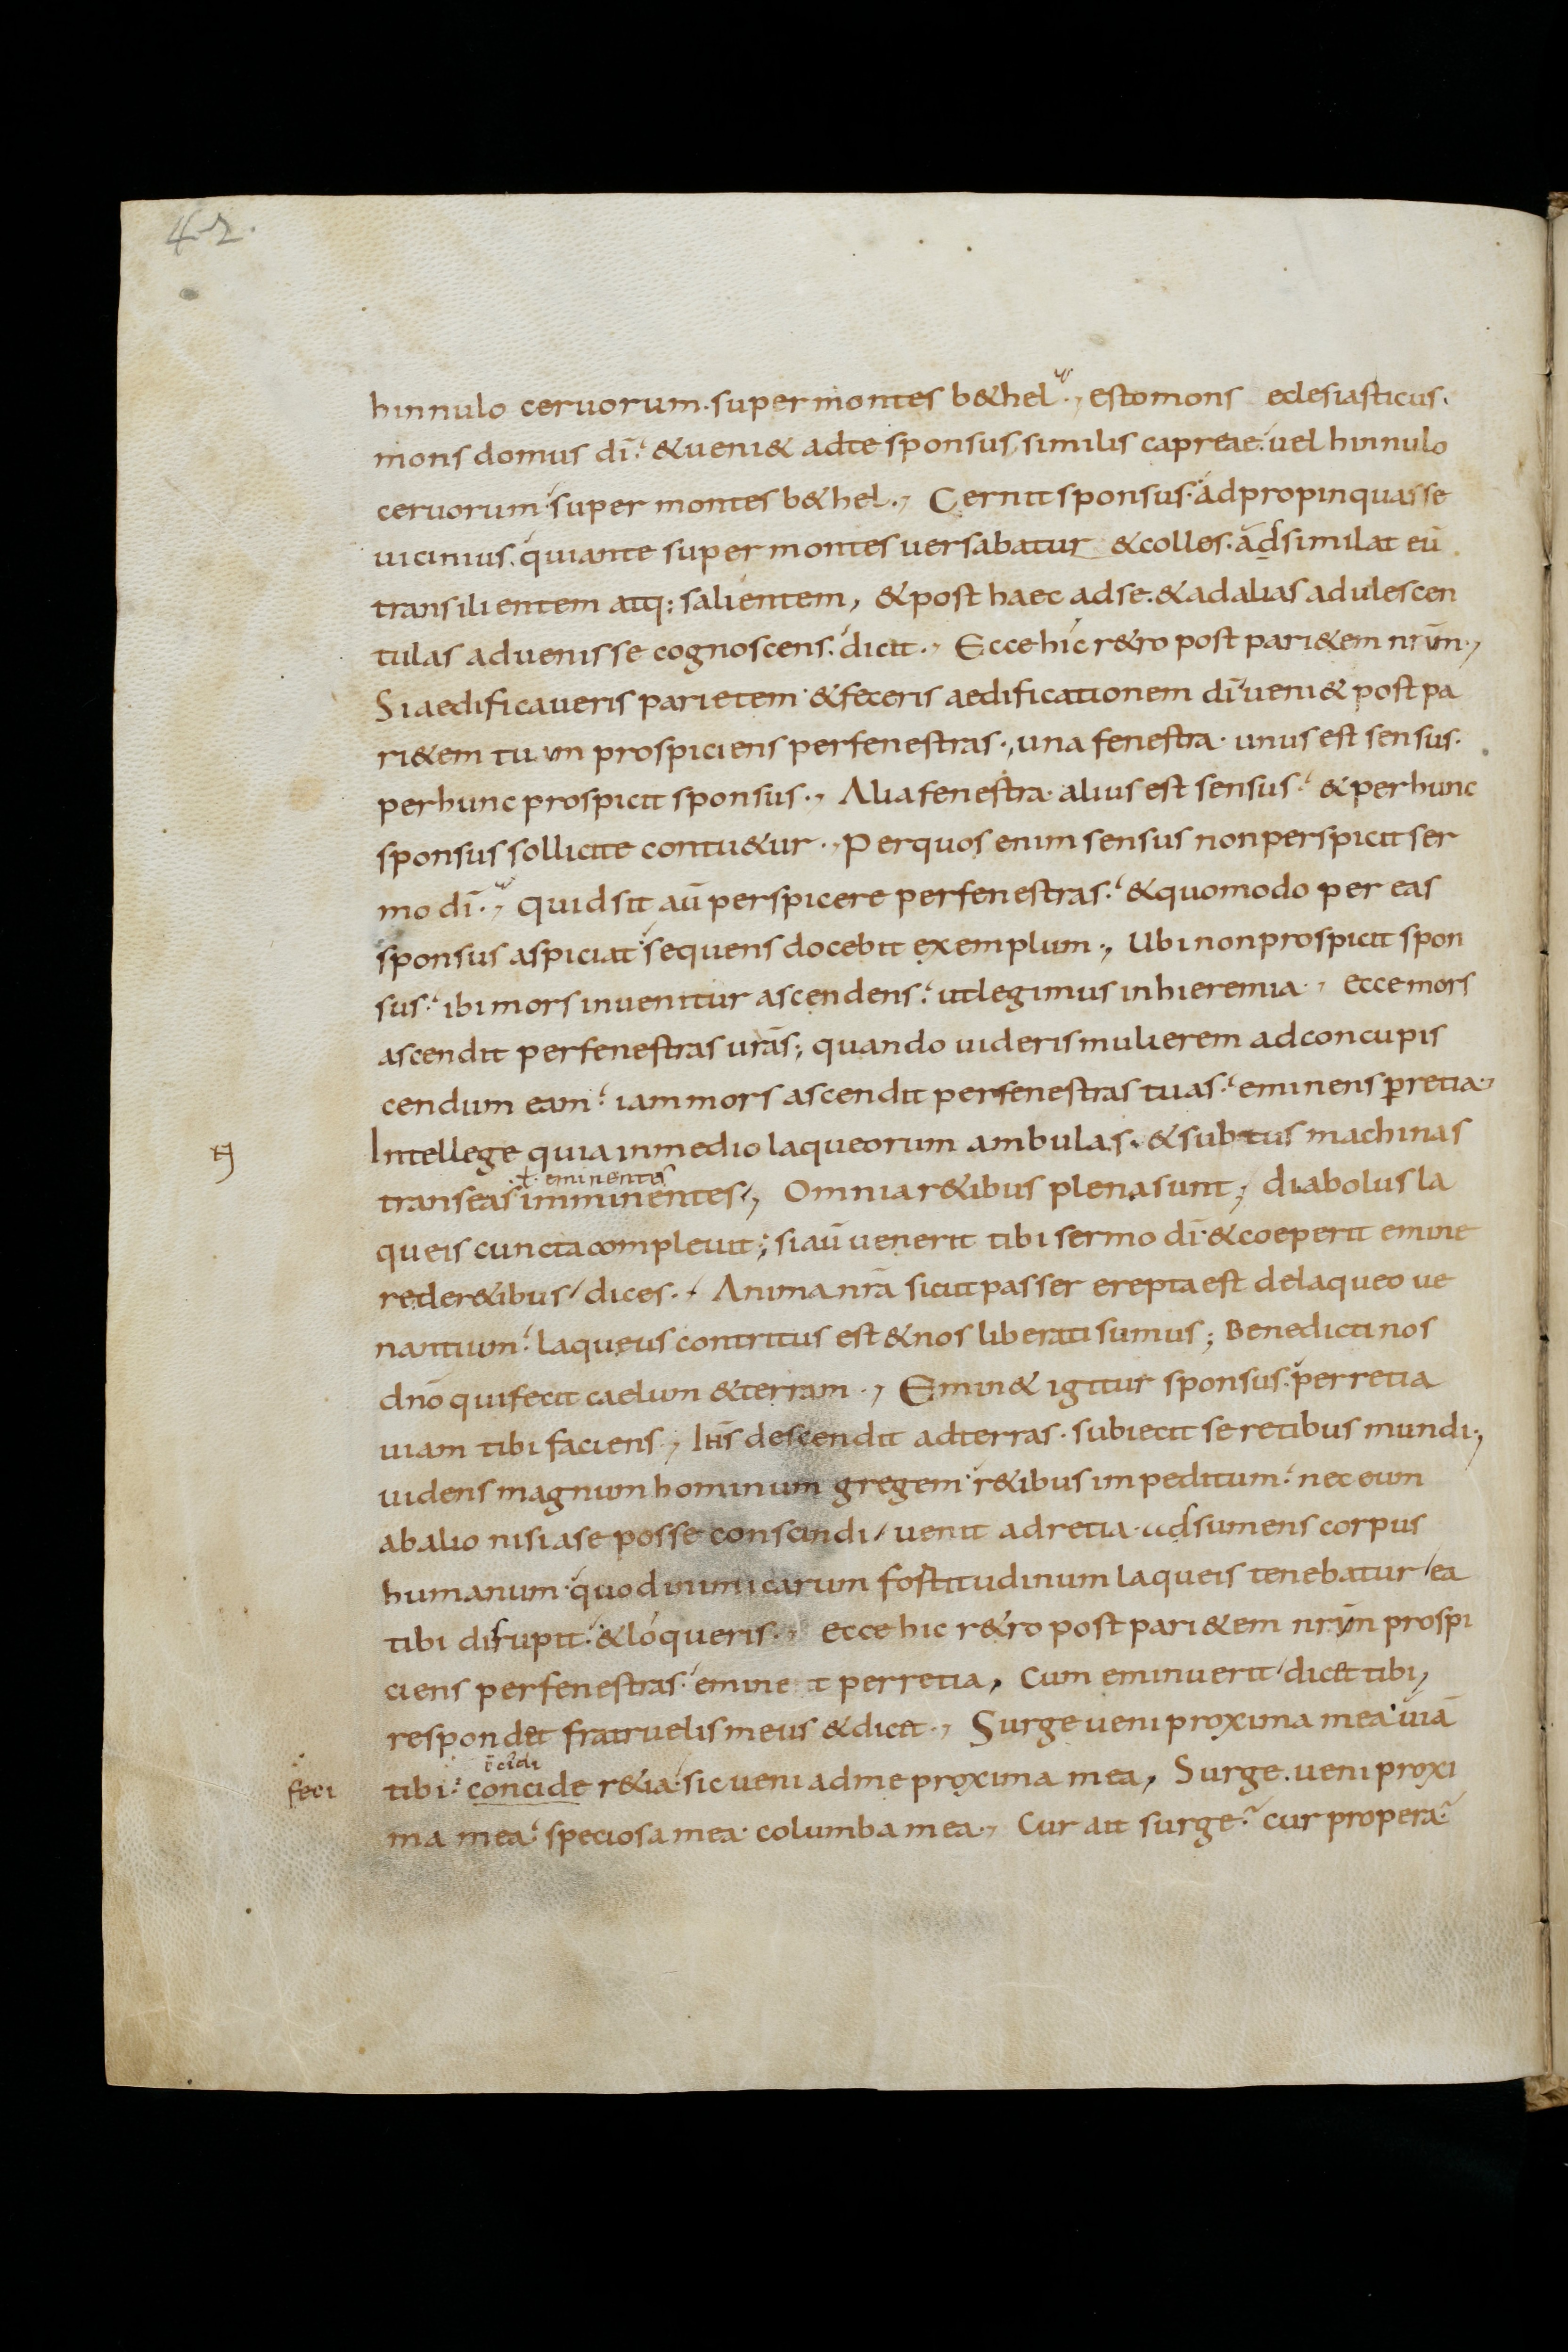 42.
hinnulo ceruorum. super montes b&hel., esto mons eclesiasticus.
mons domus dī. & ueni& ad te sponsus similis capreae. uel hinnulo
ceruorum super montes b&hel., Cernit sponsus. adpropinquasse
uicinius. quia ante super montes uersabatur & colles. adsimilat eū
transilientem atq: salientem, & post haec ad se. & ad alias adulescen
tulas aduenisse cognoscens. dicit., Ecce hic r&ro post pari&em nr̄m.,
Si aedificaueris parietem & feceris aedificationem dī ueni& post pa
ri&em tuum prospiciens per fenestras., una fenestra. unus est sensus.
per hunc prospicit sponsus., Alia fenestra. alius est sensus. & per hunc
sponsus sollicite contu&ur., Per quos enim sensus non perspicit ser
mo dī., Quid sit aū perspicere per fenestras. & quomodo per eas
sponsus aspiciat sequens docebit exemplum., Ubi non prospicit spon
sus. ibi mors inuenitur ascendens. ut legimus in hieremia., ecce mors
ascendit per fenestras urās; quando uideris mulierem ad concupis
cendum eam. iam mors ascendit per fenestras tuas. eminens p̱ retia.,
Intellege quia in medio laqueorum ambulas. & subtus machinas
.ł. eminentes
transeas imminentes., Omnia r&ibus plena sunt; diabolus la
queis cuncta compleuit; si aū uenerit tibi sermo dī. & coeperit emine
re de r&ibus, dices., Anima nrā sicut passer erepta est de laqueo ue
nantium. laqueus contritus est & nos liberati sumus; Benedicti nos
dnō qui fecit caelum & terram., Emin& igitur sponsus. per retia
uiam tibi faciens, Ihs̄ descendit ad terras. subiecit se retibus mundi.,
uidens magnum hominum gregem r&ibus impeditum. nec eum
ab alio nisi a se posse conscindi, uenit ad retia. adsumens corpus
humanum. quod inimicarum fostitudinum laqueis tenebatur, ea
tibi disrupit. & loqueris., ecce hic r&ro post pari&em nr̄m prospi
ciens per fenestras. emine t per retia, Cum eminuerit, dicet tibi,
respondet fratruelis meus & dicit., Surge ueni proxima mea uiā
feci
tibi. concide r&ia. sic ueni ad me proxima mea, Surge. ueni proxi
ma mea. speciosa mea. columba mea., Cur ait surge. cur propera.